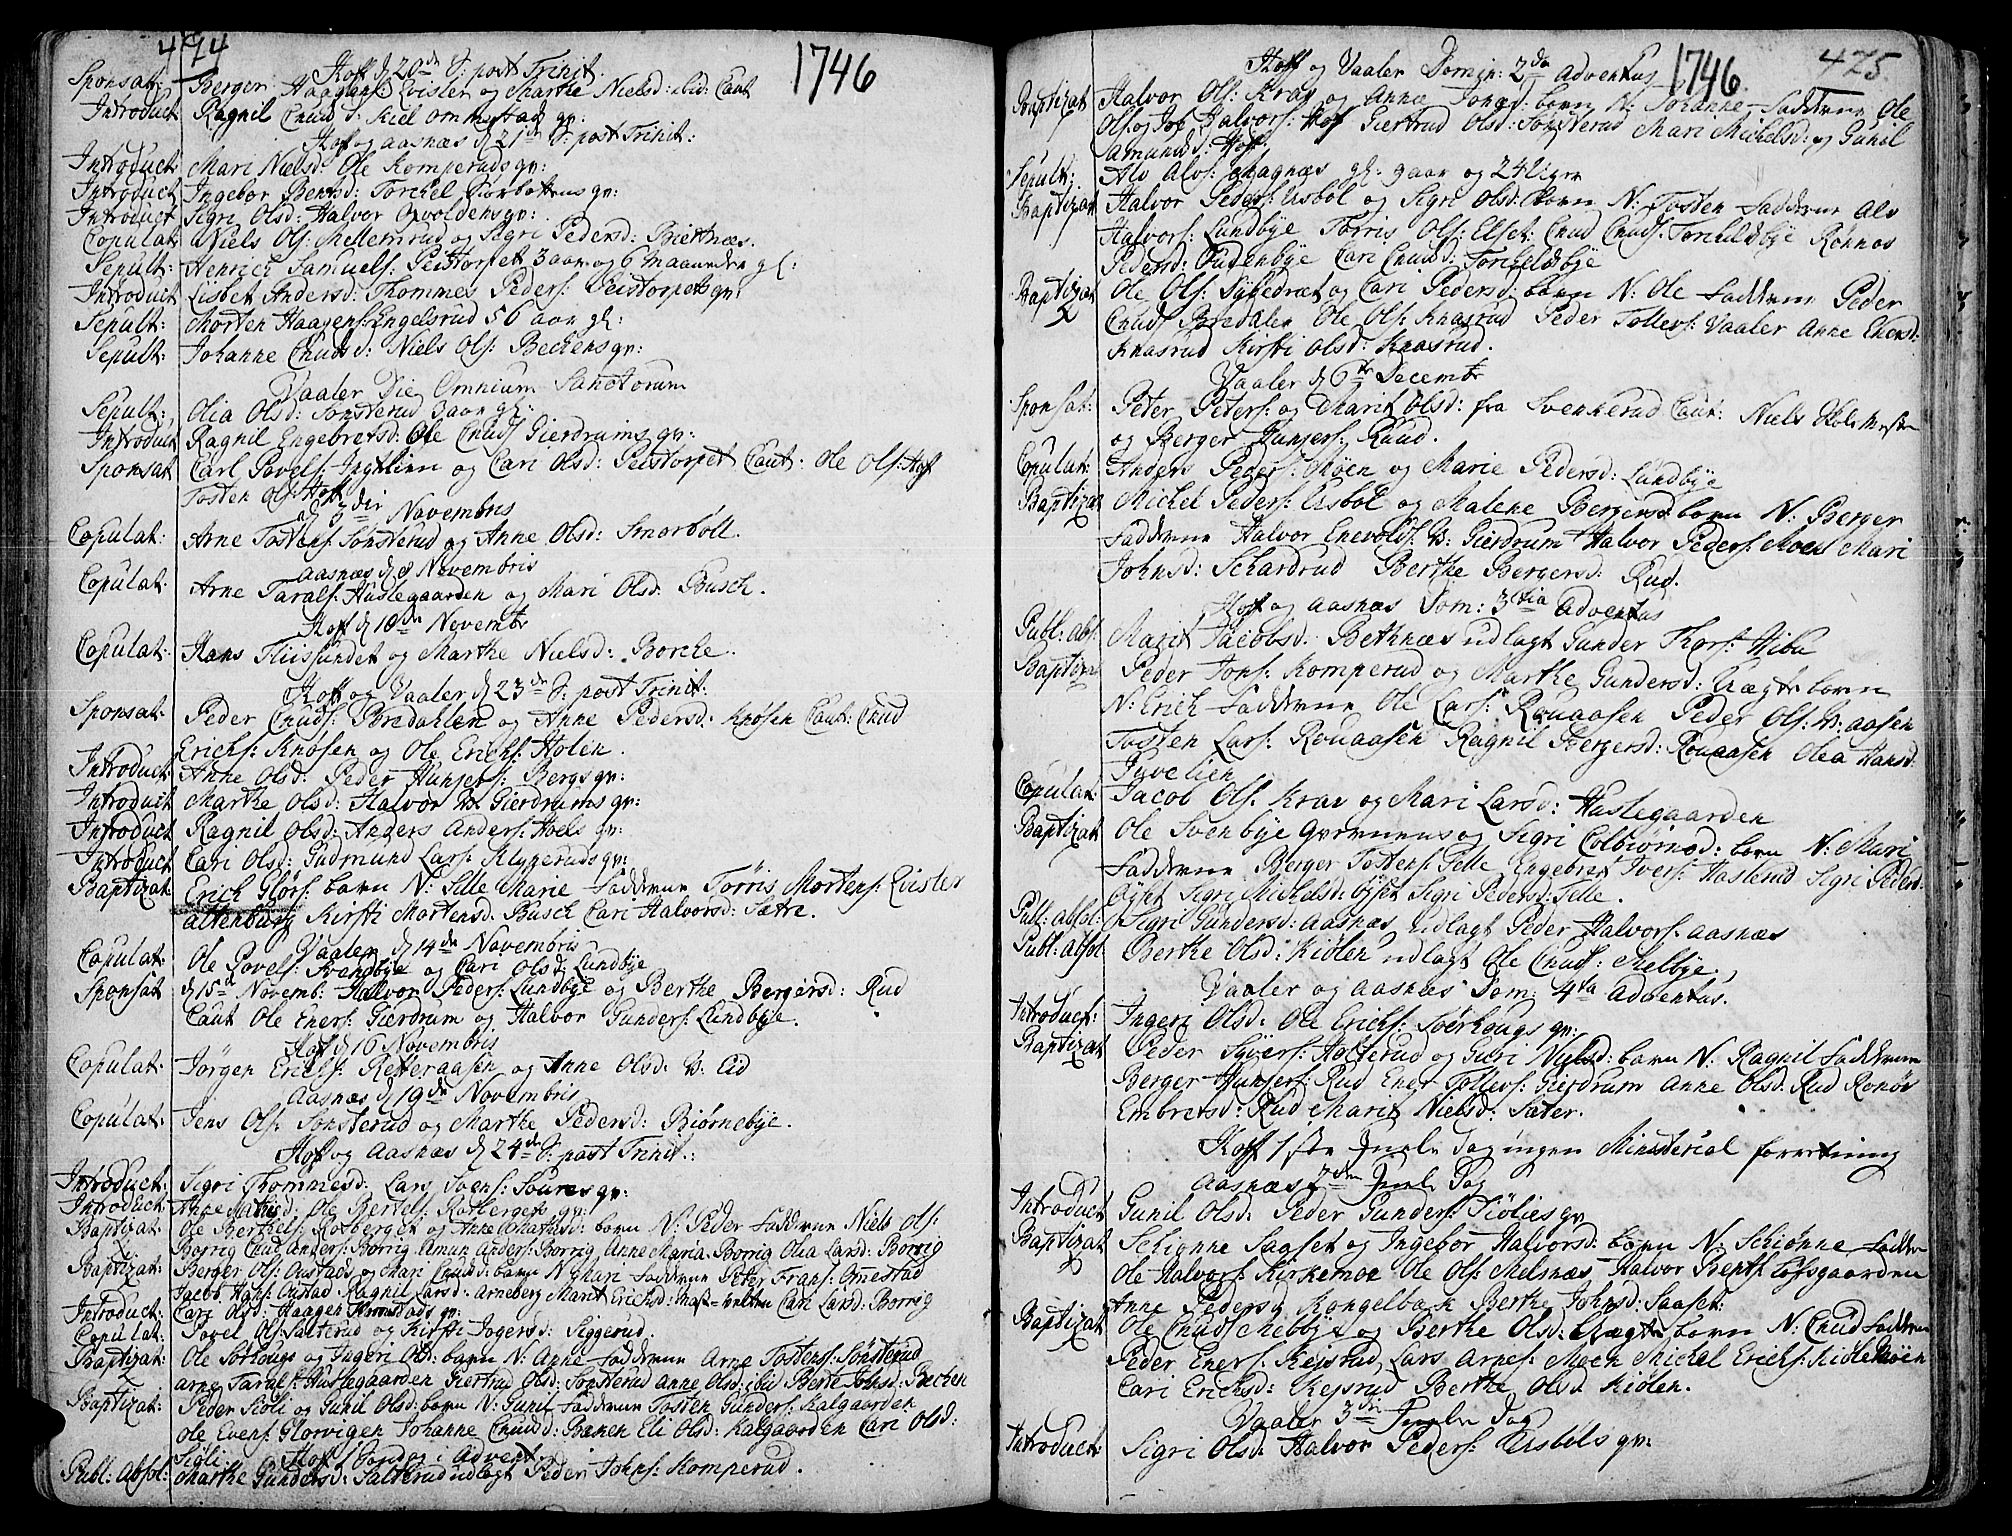 474
1746
Hoff d 20de S: post Trinit.
Sponsat: Berger Haagens: Qvisler og Marthe Nielsd: ibid: Caut
Introduct Ragnil Cnud d: Kiel ommestad qv:
Hoff og aasnæs d 21de S: post Trinit:
Introduct Mari Nielsd: Ole Komperuds qv:
Introduct Ingebor Bentsd: Torchel qv:
Introduct Sigri Olsd: Halvor Opvoldens qv:
Copulat Niels Ols: Mellemrud og Sigri Pedersd: Biertnæs.
Sepult: Henrich Samuels: Peistorpet 3 aar og 6 maaneder gl:
Introduct Lisbet Andersd: Thommes Peders: Peistorpets qv:
Sepult: Morten Haagens: Engelsrud 56 aar gl:
Sepult: Johanne Cnudsd: Niels Ols: Beckens qv:
Vaaler Die Omnium Sanctorum
Sepult: Olia Olsd: Sønsterud 3 aar gl:
Introduct Ragnil Engebretsd: Ole Cnuds Gierdrums qv:
Sponsat Carl Povels: Ingelien og Cari Olsd: Peistorpet Caut: Ole Ols: Hoff
Tosten Ols: Hoff
Novembris
Copulat: Arne Tostens: Sønsterud og Anne Olsd: Smorboll.
Aasnæs d 8 Novembris
Copulat: Arne Taralds: Huslegaarden og Mari Olsd: Busch.
Hoff d 10de Novembr
Copulat: Hans Flissundet og Marthe Nielsd: Borche.
Hoff og Vaaler d 23de S: post Trinit:
Sponsat: Peder Cnuds: Bredahlen og Anne Pedersd: Knosen Caut: Cnud
Erichs: Knosen og Ole Erichs: Holen.
Introduct: Anne Olsd: Peder Hunsers: Bergs qv:
Introduct Marthe Olsd: Halvor N: Gierdrums qv:
Introduct Ragnil Olsd: Anders Anders: Hoels qv:
Introduct Cari Olsd: Gudmund Lars: Klyneruds qv:
Baptizat Erich Glørs: barn N: Sille Marie Fadderne Törris Mortens: Qvisler
Altenburg Kirsti Mortensd: Busch Cari Halvorsd: Sætre.
Vaaler d 14de Novembris
Copulat: Ole Povels: Svendbÿe og Cari Olsd: Lundbÿe
Sponsat d 15de Novemb: Halvor Peders: Lundbÿe og Berthe Bergersd: Rud
Caut Ole Eners: Gierdrum og Halvor Gunders: Lundbÿe.
Hoff d 16 Novembris
Copulat: Jörgen Erichs: Retteraasen og Anne Olsd: N: Eid
Aasnæs d 19de Novembris
Copulat: Jens Ols: Sonsterud og Marthe Pedersd: Biørnebÿe.
Hoff og Aasnæs d 24de S: post Trinit:
Introduct: Sigri Thommesd: Lars Svens: Soures qv:
Introduct: Anne Mathisd: Ole Bertels: Rotbergets qv:
Baptizat: Ole Berthels: Rotberget og Anne Mathisd: barn N: Peder Fadderne Niels Ols:
Borrig Cnud Anders: Borrig Amun Anders: Borrig Anne Maria Borrig Olia Larsd: Borrig
Baptizat: Berger Ols: Oustads og Mari Cnudsd: barn N: Mari Fadderne Peter Frans: Ommestad
Jacob Hans: Oustad Ragnil Larsd: Arneberg Marit Erichsd: Cari Larsd: Borrig
Introduct: Cari Olsd: Haagen qv:
Copulat: Povel Ols: Salterud og Kirsti Jogersd: Siggerud.
Baptizat: 2 Ole Sörhougs og Ingeri Olsd: barn N: Anne Fadderne Arne Tostens: Sønsterud
Arne Tarals: Huslegaarden Giertrud Olsd: Sonsterud Anne Olsd: ibid Berte Johsd: Becken
Baptizat: Peder Siöli og Gunil Olsd: barn N: Gunil Fadderne Tosten Gunders: Kalgaarden
Ole Evens: Glorvigen Johanne Cnudsd: Banen Eli Olsd: Kalgaarden Cari Olsd:
Siöli. Hoff 1 Søndag i Advent.
Publ: Absol: Marthe Gundersd: Salterud udlagt Peder Johns: Komperud.
475
1746
Hoff og Vaaler Domin: 2da Adventus
Baptizat Halvor Ols: Krav og Anne Johnsd: barn N: Johanne Fadderne Ole
Ols: og Joh Halvors: Hof Giertrud Olsd: Sønsterud Mari Michelsd: og Gunil
Samunsd: Hof.
Sepult: Alv Alvs: Magnæs gl: 9 aar og 24 Uger
Baptizat Halvor Peders: Eisböl og Sigri Olsd: barn N: Tosten Fadderne Alv
Halvors: Lundbÿe Törris Ols: Elset: Cnud Cnuds: Torchildsbÿe Rönnog
Pedersd: Oudenbÿe Cari Cnudsd: Torchelsbÿe
Baptizat 2 Ole Ols: og Cari Pedersd: barn N: Ole Fadderne Peder
Cnuds Bredalen Ole Ols: Knasrud Peder Tollevs: Vaaler Anne Enersd:
Knasrud Kirsti Olsd: Knasrud.
Vaaler d 6te Decembr
Sponsat: Peter Peters: og Marit Olsd: fra Svenkerud Caut: Niels Skolemester
og Berger Hunsers: Ruud.
Copulat: Anders Peders: Möen og Marie Pedersd: Lundbÿe
Baptizat Michel Peders: Eisböl og Malene Bergersd: barn N: Berger
Fadderne Halvor Enevolds: N: Gierdrum Halvor Peders: Moen Mari
Johnsd: Schardrud Berthe Bergersd: Rud.
Hoff og aasnæs Dom: 3tia Adventus
Publ: abs: Marit Jacobsd: Bethnæs udlagt Gunder Thors: Hibu
Baptizat Peder Jons: Komperud og Marthe Gundersd: Uægte barn
N: Erich Fadderne Ole Lars: Rouaasen Peder Ols: N: aasen
Tosten Lars: Rouaasen Ragnil Bergersd: Rouaasen Olea Hansd:
Tyvelien
Copulat: Jacob Ols: Krav og Mari Larsd: Huslegaarden
Baptizat Ole Svenbÿe Grænnens og Sigri Colbiörnsd: barn N: Mari
Fadderne Berger Tostens: Sille Engebret Ivers: Haslerud Sigri Pedersd:
Öyset Sigri Michelsd: Öyset Sigri Pedersd: Sille.
Publ: absol: Sigri Gundersd: Aasnæs udlagt Peder Halvors: Aasnæs
Publ: absol Berthe Olsd: Kiölen udlagt Ole Cnuds: Melbÿe.
Vaaler og Aasnæs Dom: 4ta Adventus.
Introduct: Ingeri Olsd: Ole Erichs: Sörhougs qv:
Baptizat Peder Syvers: Holterud og Guri Nielsd: barn N: Ragnil Fadderne
Berger Hunsers: Rud Ener Tollevs: Gierdrum Anne Olsd: Rud Ronöv
Embretsd: Rud Marit Nielsd: Sæter.
Hoff 1ste Juele Dag ingen Ministerial forretning
Aasnæs 2den Juele Dag
Introduct Gunil Olsd: Peder Gunders: Siölies qv
Baptizat 2 Schönne Sagset og Ingebor Halvorsd: barn N: Schiönne Fadder
Ole Halvors: Kirkemoe Ole Ols: Melsnæs Halvor Bents: Lofsgaarden
Anne Pedersd Kongelbæk Berthe Johnsd: Saaset:
Baptizat Ole Cnuds Melbÿe og Berthe Olsd: Uægte barn N: Cnud Fadderne
Peder Eners: Kejsrud Lars Arnes: Moen Michel Erichs: Kiölemöen
Cari Erichsd: Kejsrud Berthe Olsd: Kiölen.
Vaaler 3die Juele Dag
Introduct: Sigri Olsd: Halvor Peders: Eisböls qv: